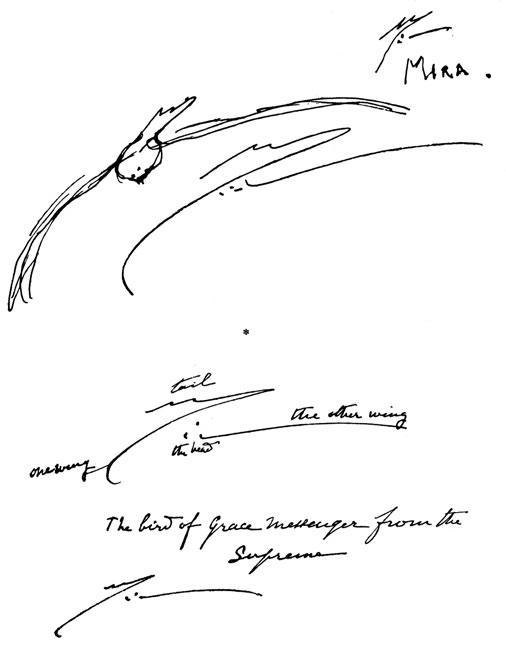 MIRA.
*
tail
the other wing
the head
one wing
The bird of Grace messenger from the
Supreme